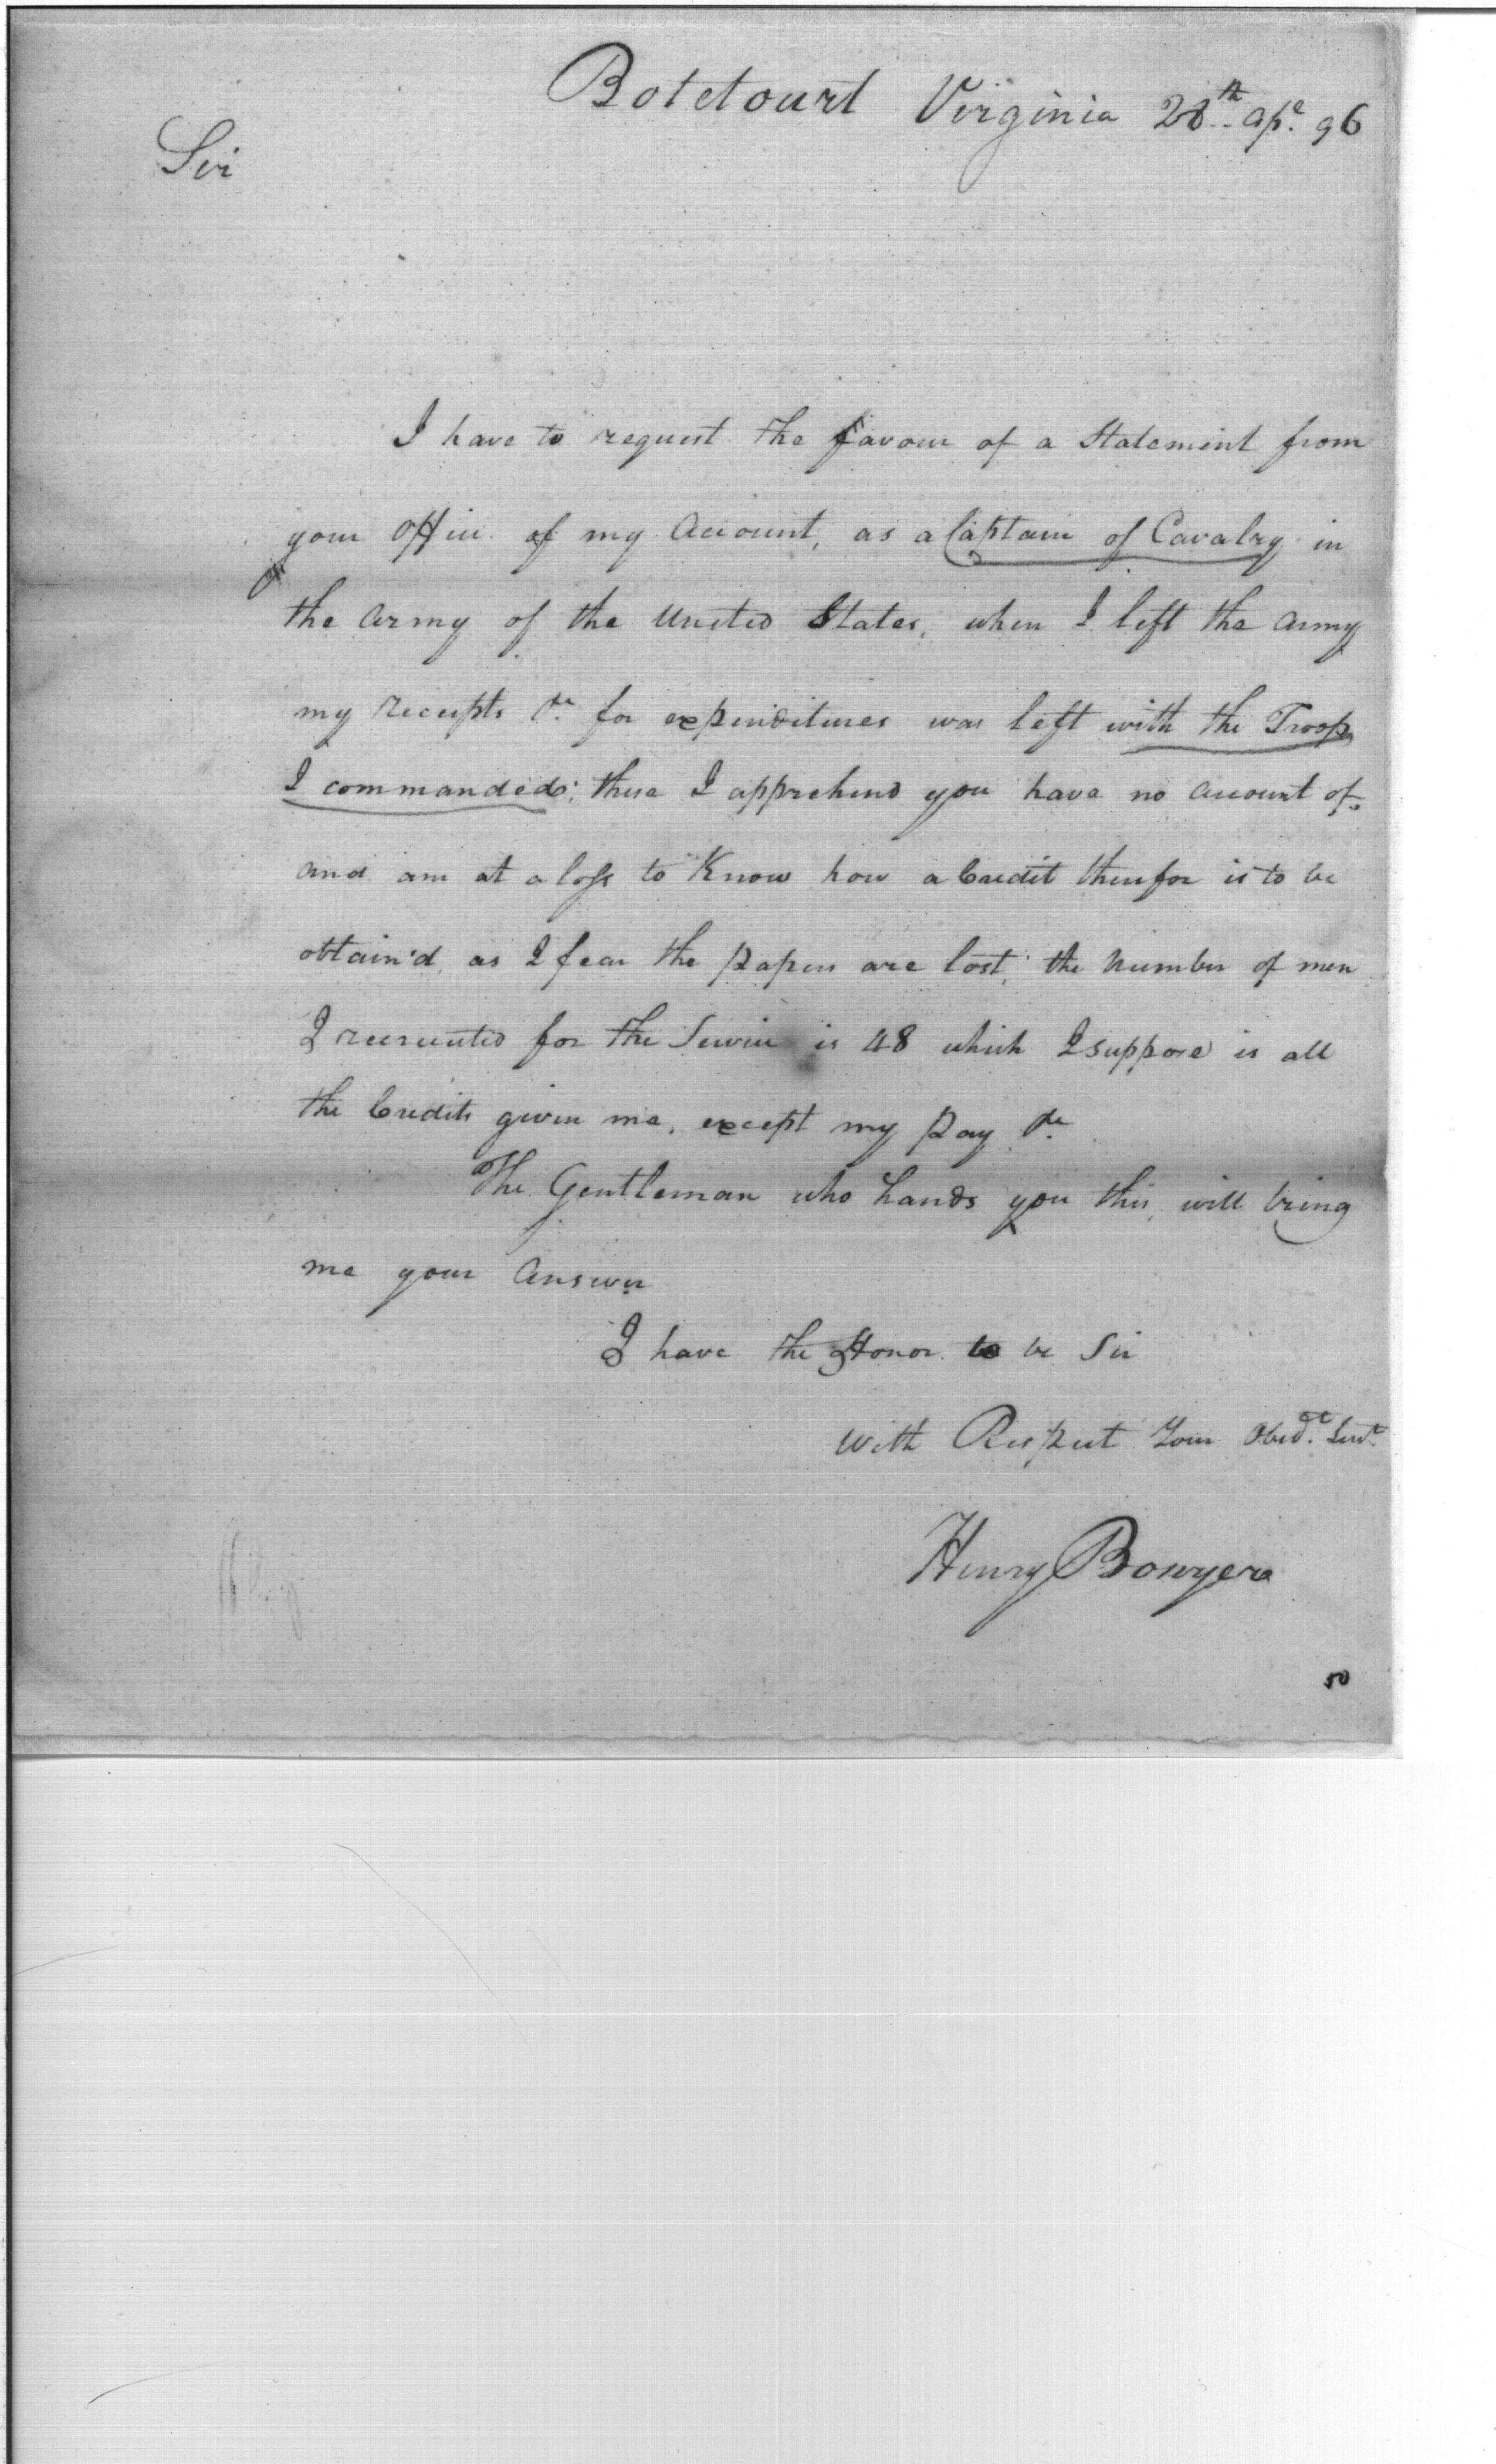 Botetourt Virginia 28th Apl. 96
Sir
I have to request the favour of a Statement from
your Office of my Account, as a Captain of Cavalry in
the Army of the United States, when I left the Army
my receipts &c. for expenditures was left with the Troop
I commanded; these I apprehend you have no account of.
and am at a loss to Know how a Credit therefor is to be
obtain'd, as I fear the papers are lost, the Number of men
I recruited for the Service is 48 which I suppose is all
the Credits given me, except my pay &c
The Gentleman who hands you this, will bring
me your Answer
I have the Honor to be Sir
with Respect Your Obedt. Servt.
Henry Bowyer
50